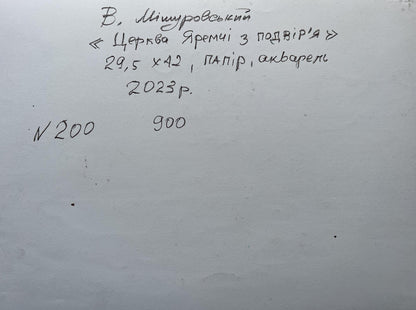 В. Мішуровський
« Церква Яремчі з подвір'я »
29,5 x 42, папір, акварель
2023 р.
N 200 900